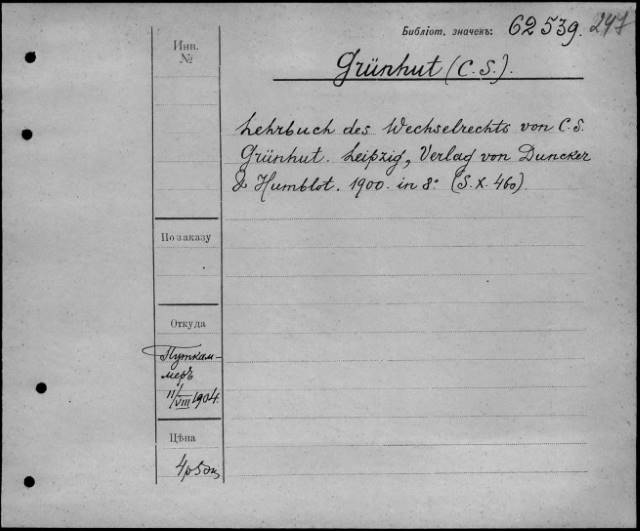 Библіот. значекъ: 62539. 247
Инв.
№
Grünhut (C. S.).
Lehrbuch des Wechselrechts von C. S.
Grünhut. Leipzig, Verlag von Duncker
& Humblot. 1900. in 8° (S. X. 460)
По заказу
Откуда
Путкам-
меръ
11/VIII 1904.
Цѣна
4р50к